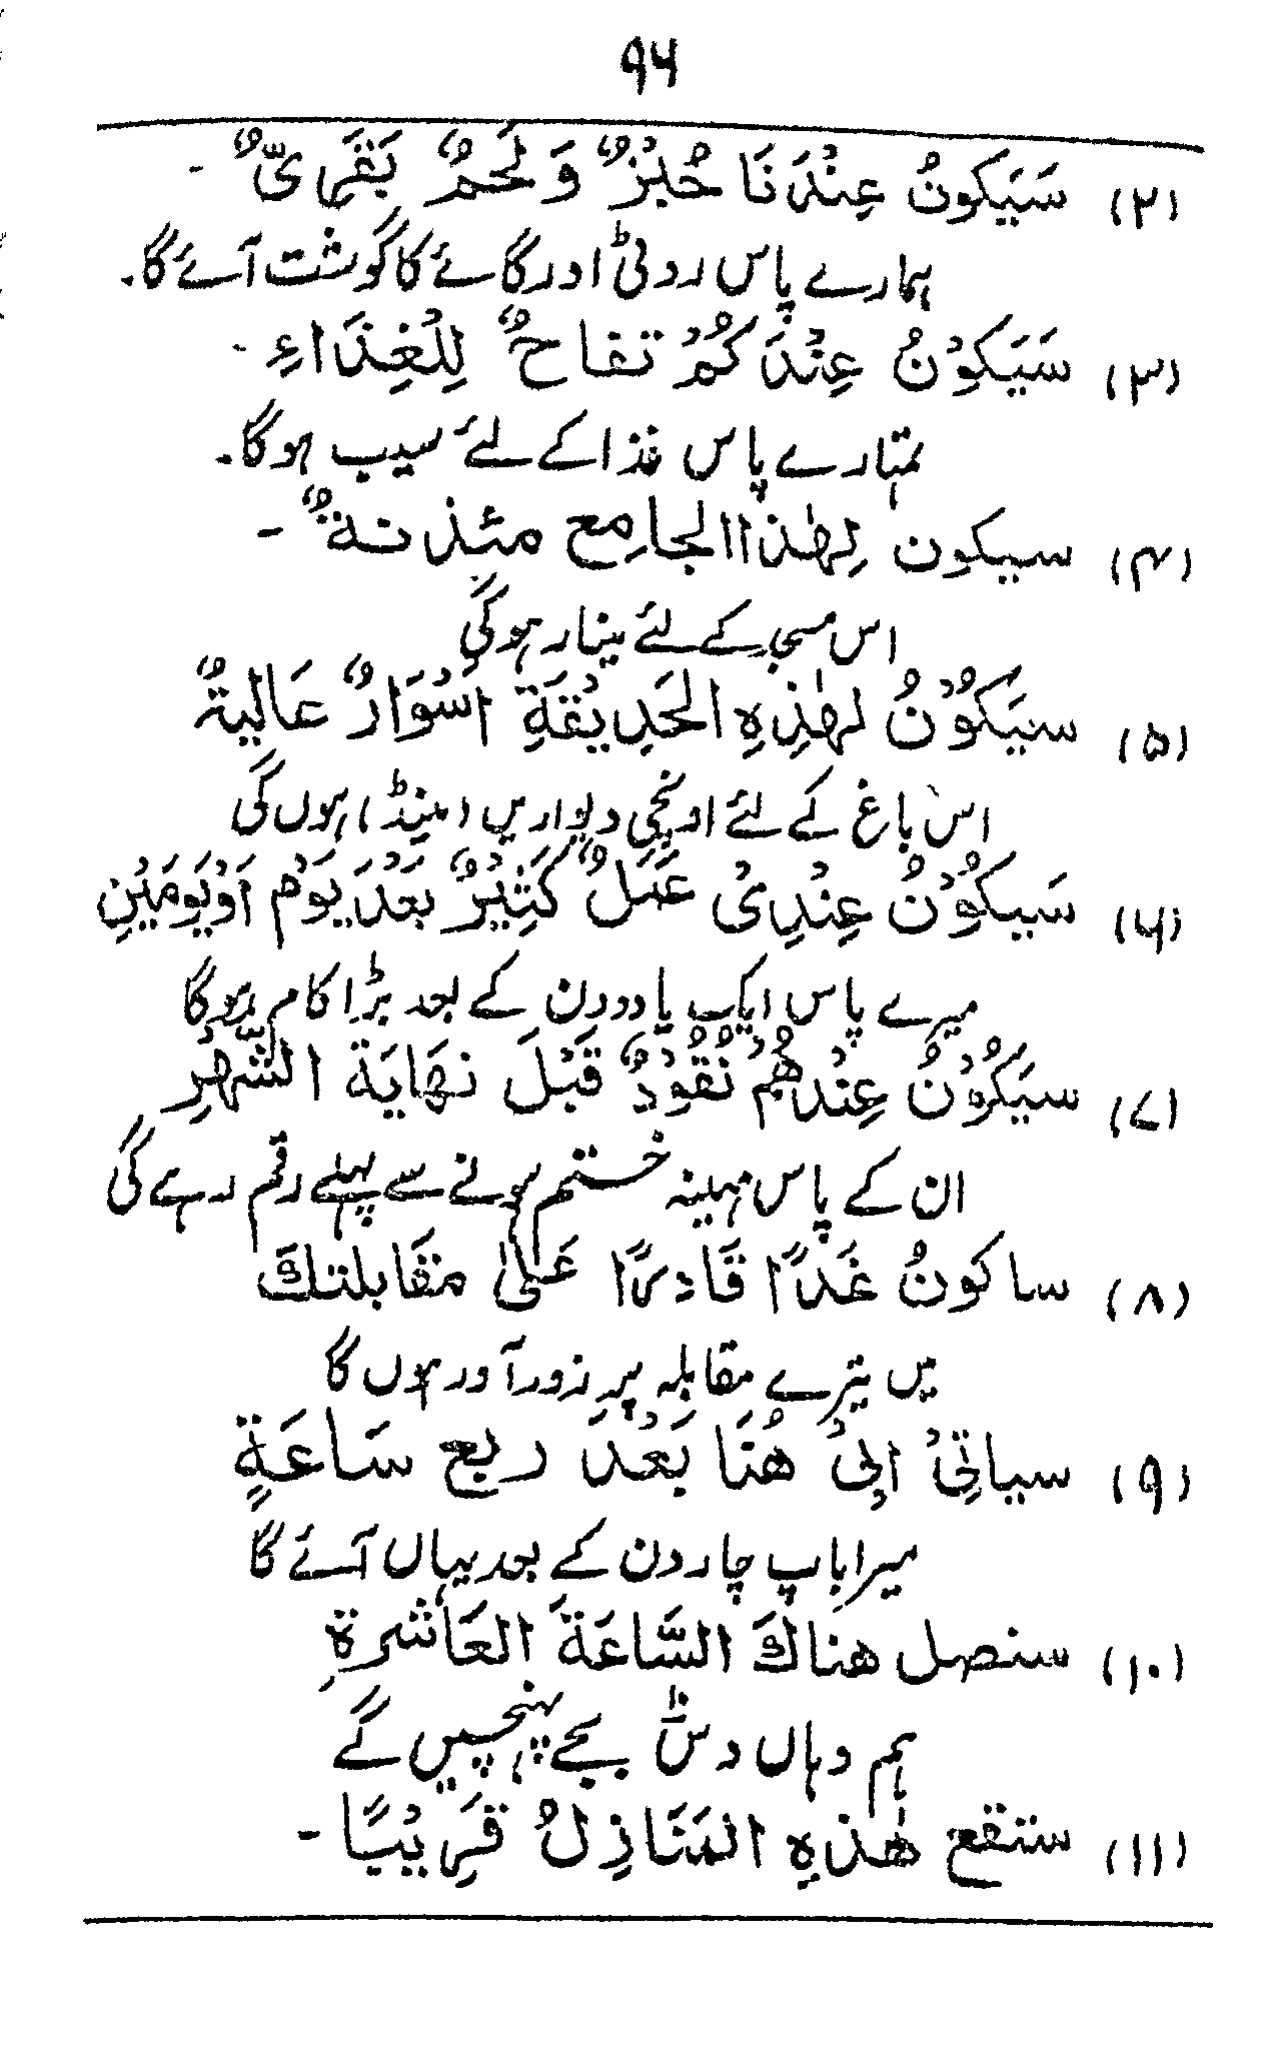 ۹۶
(۲) سَیَکونُ عِنْدَنَا خُبْزٌ وَلَحمٌ بَقَرِیٌّ ۔
ہمارے پاس روٹی اور گائے کا گوشت آئے گا۔
(۳) سَیَکوْنُ عِنْدَکُمْ تفاحٌ لِلْغِذَاءِ ۔
تمہارے پاس غذا کے لئے سیب ہوگا۔
(۴) سیکون لِھٰذا الجامِع مئذنةٌ ۔
اس مسجد کے لئے مینار ہوگی
(۵) سیَکُوْنُ لھٰذِہِ الحَدِیْقَةِ اَسْوَارٌ عَالیةٌ
اس باغ کے لئے اونچی دیواریں (مینڈ) ہوں گی
(۶) سَیکُوْنُ عِنْدِیْ عَمَلٌ کَثِیْرٌ بَعْدَ یَوْم اَوْیَومَیْنِ
میرے پاس ایک یا دو دن کے بعد بڑا کام ہوگا
(۷) سیَکُوْنُ عِنْدھُمْ نُقُوْدٌ قَبْلَ نھَایَة الشَّھْرِ
ان کے پاس مہینہ ختم ہونے سے پہلے رقم رہے گی
(۸) ساکونُ غَدًا قَادِرًا عَلیٰ مقَابلتكَ
میں تیرے مقابلہ پر زور آور ہوں گا
(۹) سیاتِیْ ابِیْ ھُنَا بَعْدَ ربع سَاعَةٍ
میرا باپ چار دن کے بعد یہاں آئے گا
(۱۰) سنصل ھناكَ السَّاعَةَ العَاشرةِ
ہم وہاں دس بجے پہنچیں گے
(۱۱) ستقع ھٰذہِ المَنَازِلُ قَرِیْبًا ۔